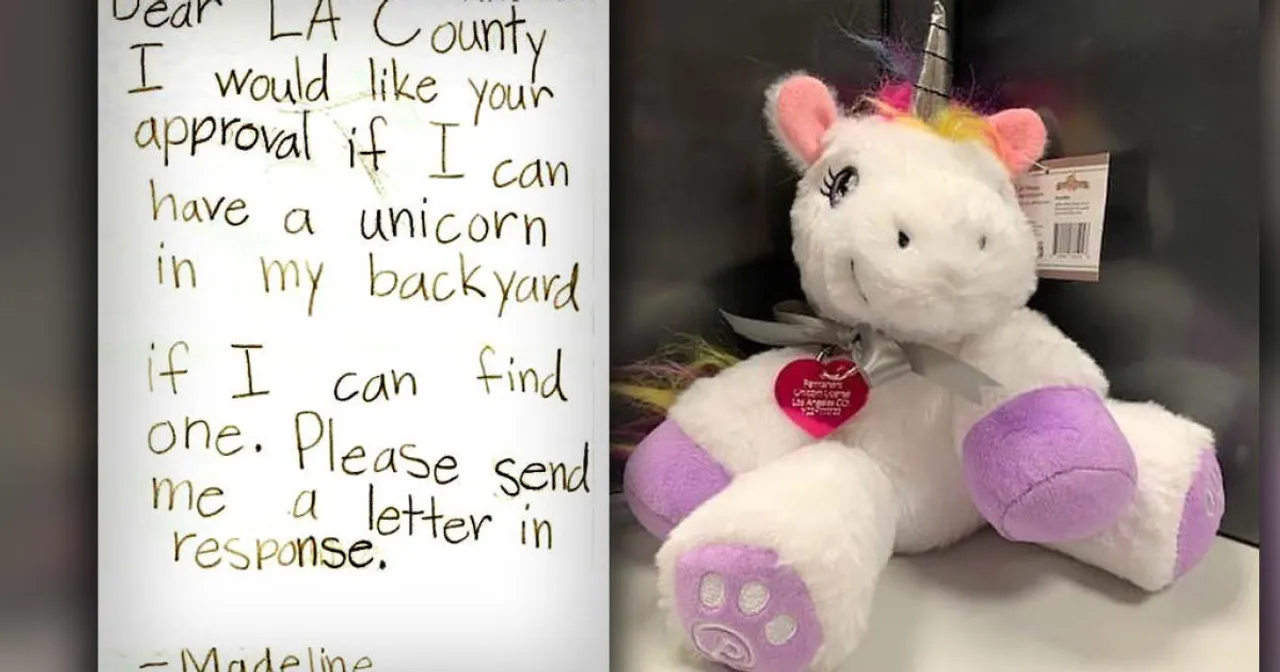 Dear LA County
I would like your
approval if I can
have a unicorn
in my backyard
if I can find
one. Please send
me a letter in
response.
- Madeline
Permanent
Unicorn License
Los Angeles CO.